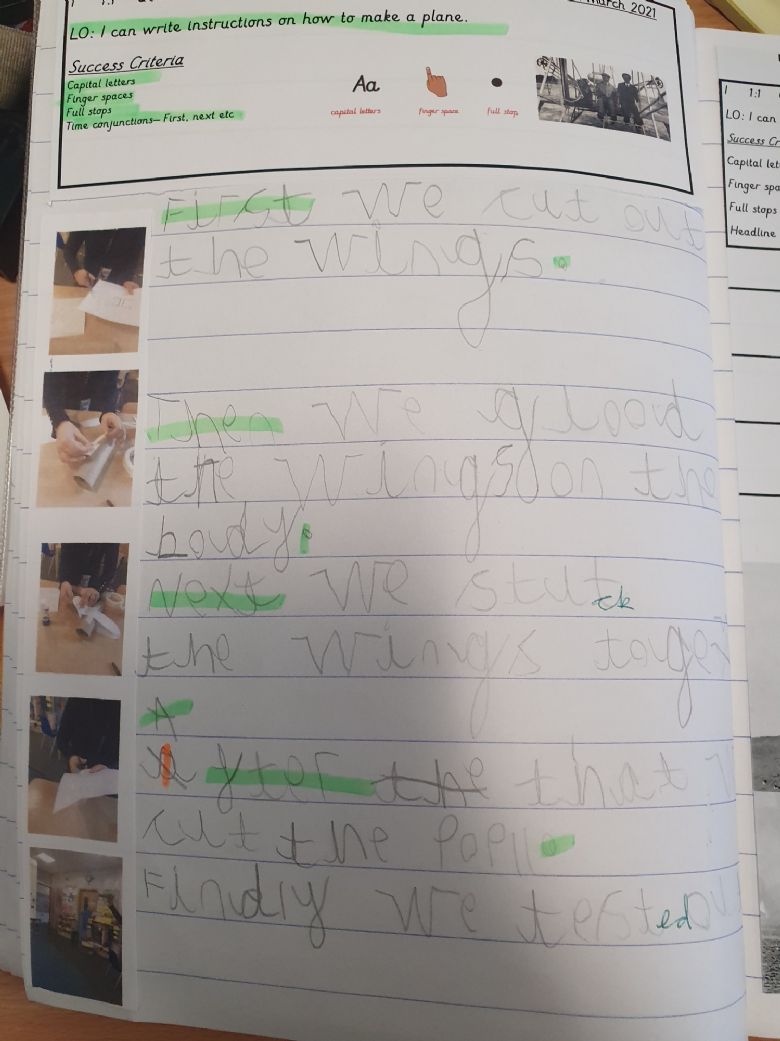 March 2021
LO: I can write instructions on how to make a plane.
Success Criteria
Capital letters
Finger spaces
Full stops
Time conjunctions– First, next etc
Aa
capital letters
finger space
full stop
First we cut out
the wings.
Then we glood
the wings on the
body.
Next we stuck
the wings toge
A
After the that
cut the
Finally we tested
1:1
LO: I can
Success Cr
Capital let
Finger spa
Full stops
Headline